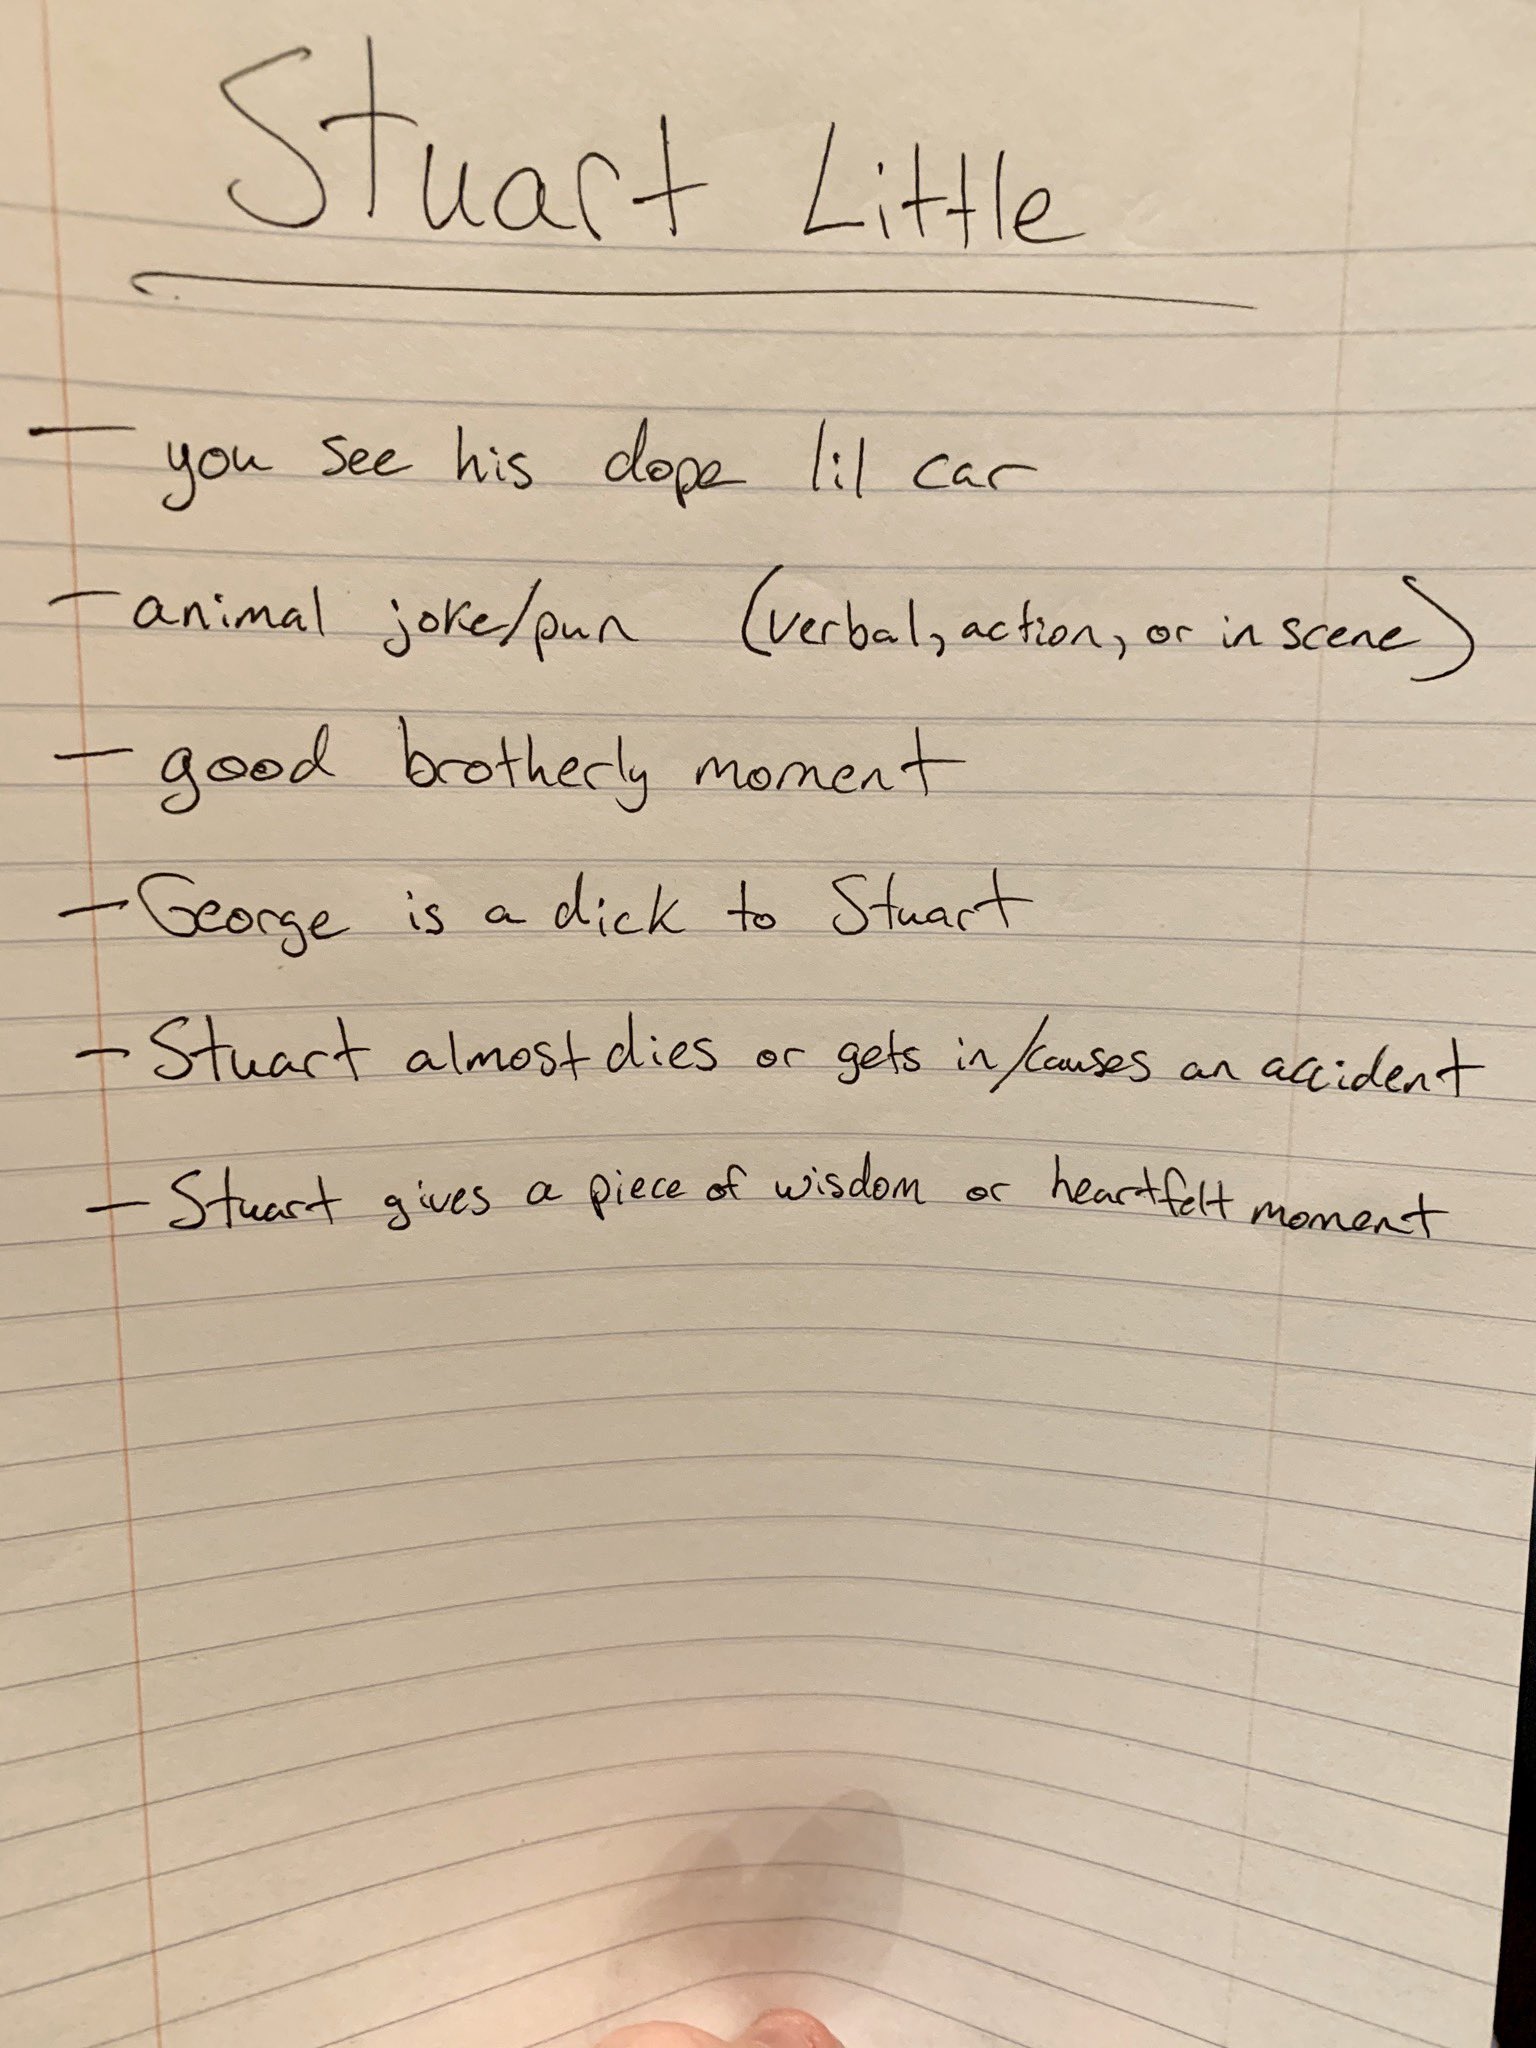 Stuart Little
- you see his dope lil car
- animal joke/pun (verbal, action, or in scene)
- good brotherly moment
- George is a dick to Stuart
- Stuart almost dies or gets in/causes an accident
- Stuart gives a piece of wisdom or heartfelt moment